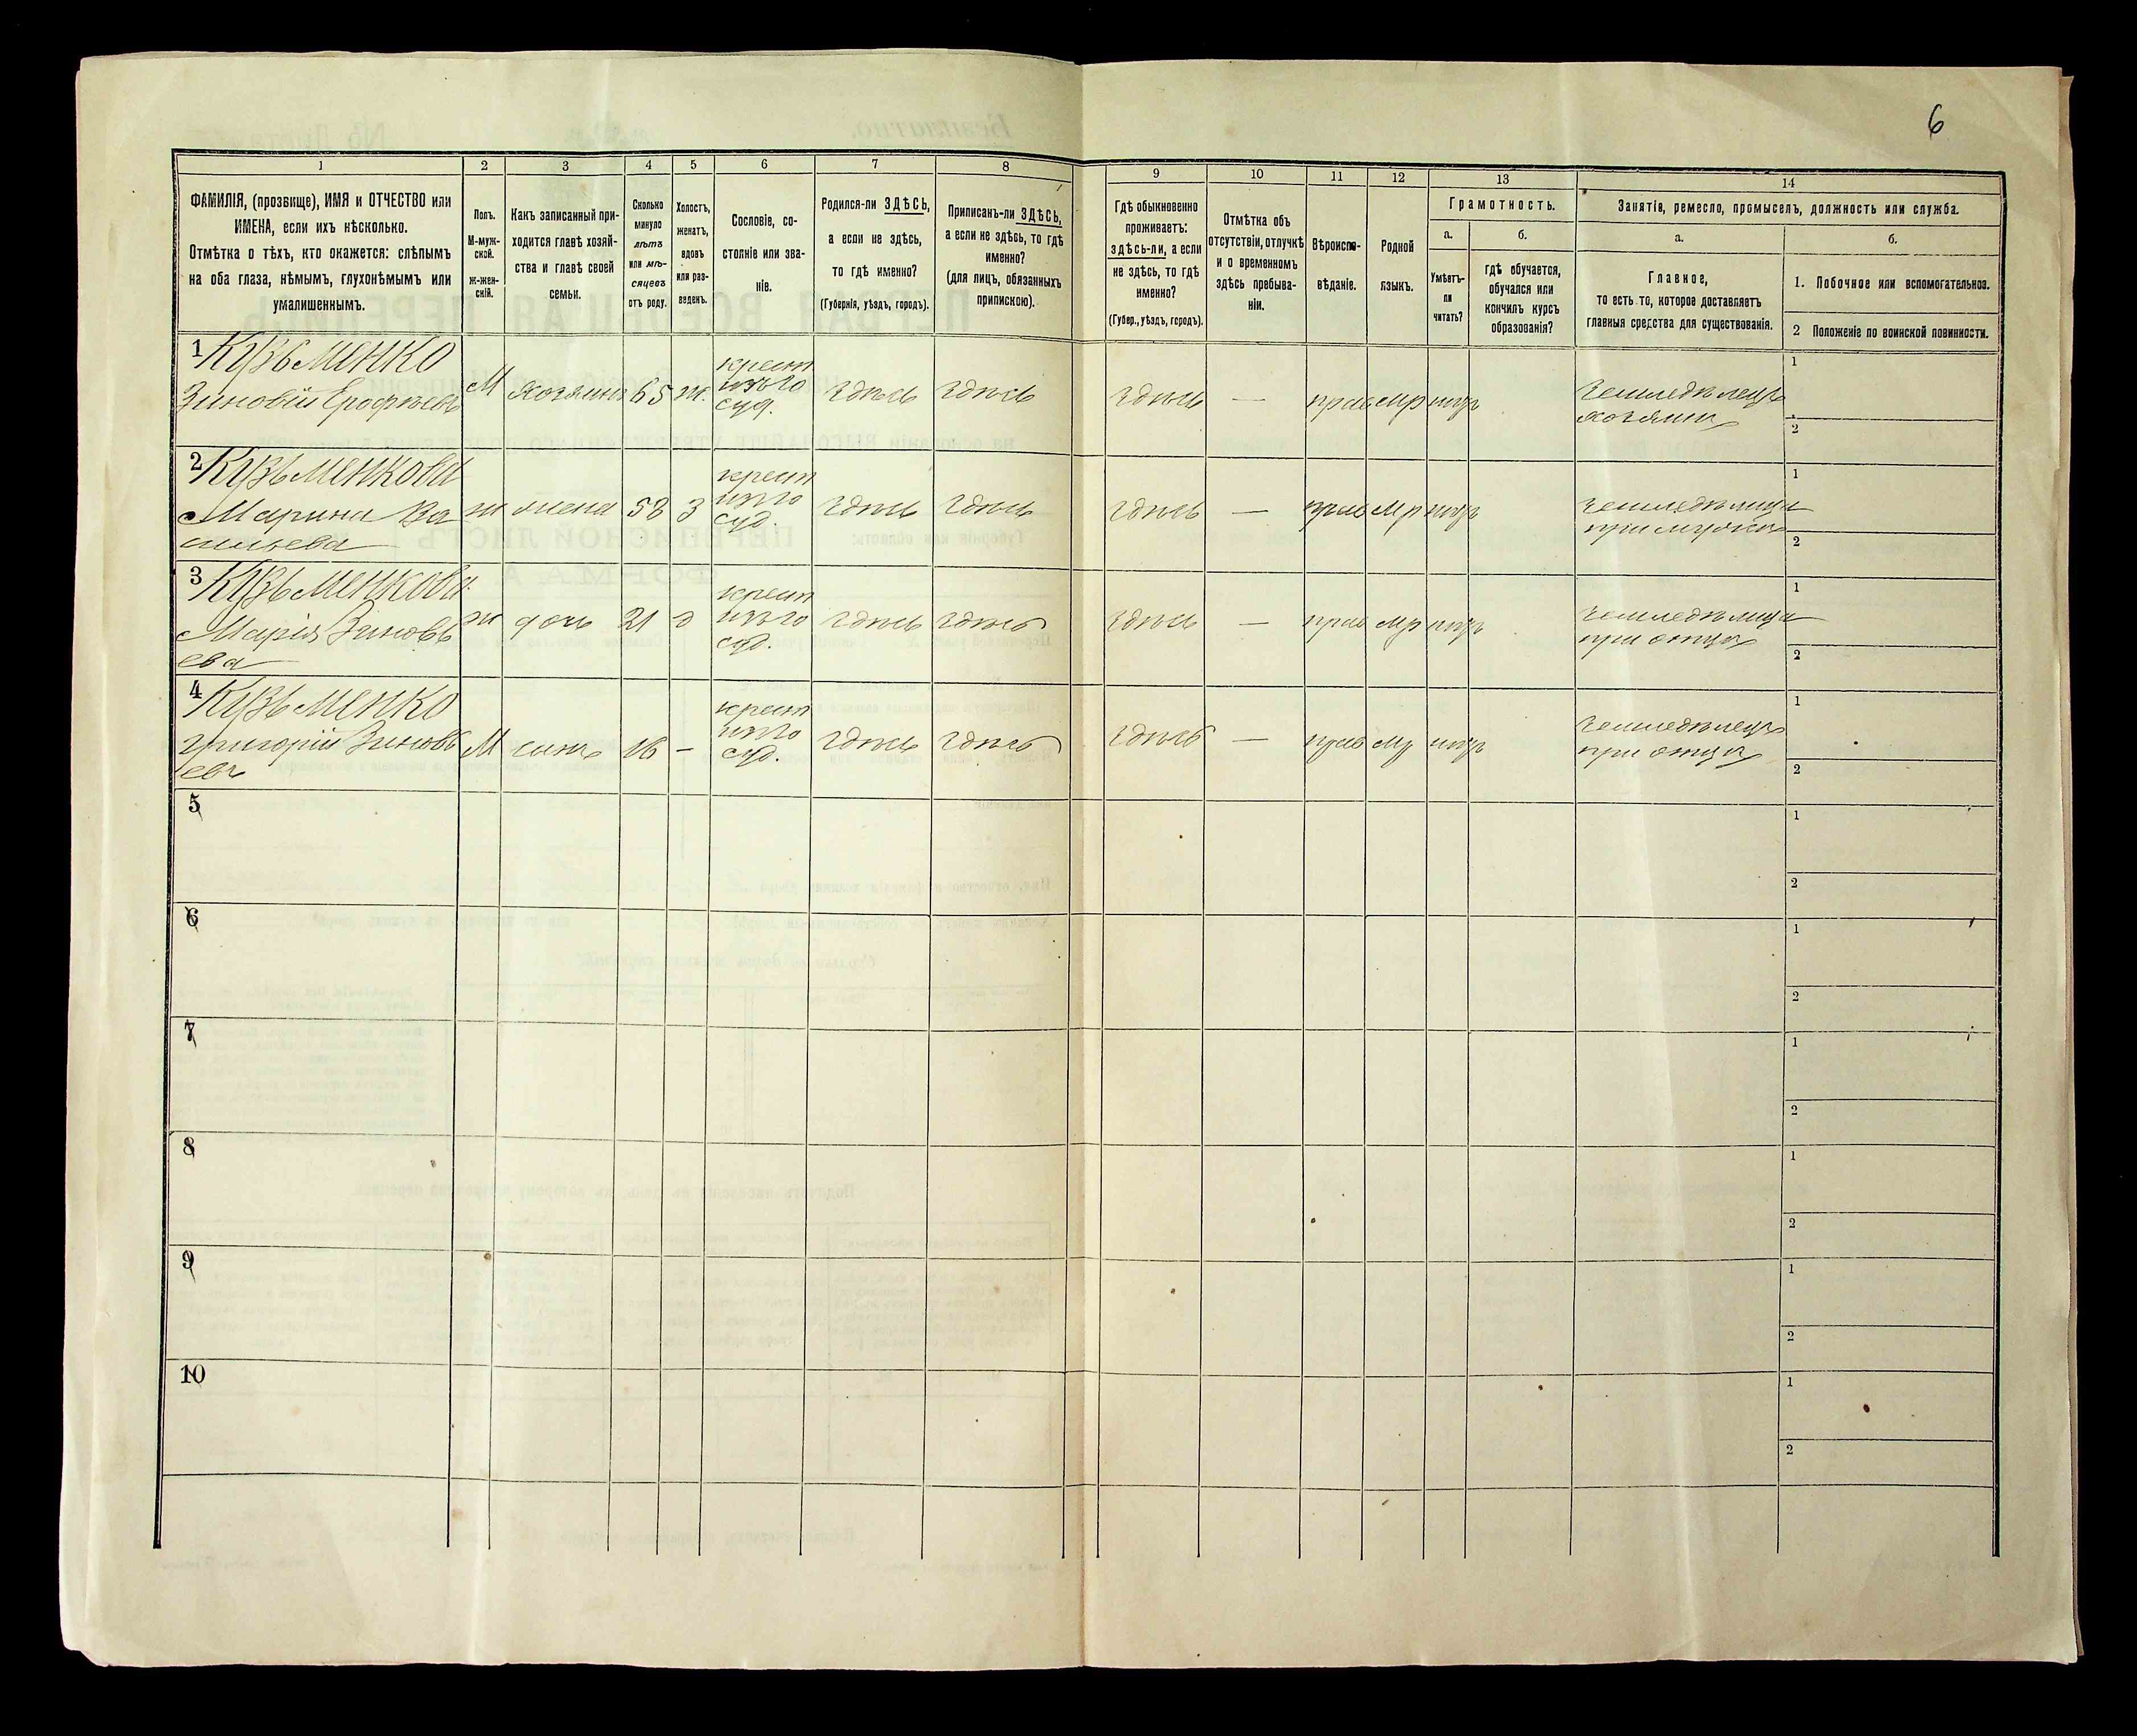 6
1
2
3
4
5
6
7
8
9
10
11
12
13
14
ФАМИЛІЯ, (прозвище), ИМЯ и ОТЧЕСТВО или
ИМЕНА, если ихъ нѣсколько.
Отмѣтка о тѣхъ, кто окажется: слѣпымъ
на оба глаза, нѣмымъ, глухонѣмымъ или
умалишеннымъ.
Полъ.
М-муж-
ской.
ж-жен-
скій.
Какъ записанный при-
ходится главѣ хозяй-
ства и главѣ своей
семьи.
Сколько
минуло
лѣтъ
или мѣ-
сяцевъ
отъ роду.
Холостъ,
женатъ,
вдовъ
или раз-
веденъ.
Сословіе, со-
стояніе или зва-
ніе.
Родился-ли ЗДѢСЬ,
а если не здѣсь,
то гдѣ именно?
(Губернія, уѣздъ, городъ).
Приписанъ-ли ЗДѢСЬ,
а если не здѣсь, то гдѣ
именно?
(для лицъ, обязанныхъ
припискою).
Гдѣ обыкновенно
проживаетъ:
здѣсь-ли, а если
не здѣсь, то гдѣ
именно?
(Губер., уѣздъ, городъ).
Отмѣтка объ
отсутствіи, отлучкѣ
и о временномъ
здѣсь пребыва-
ніи.
Вѣроиспо-
вѣданіе.
Родной
языкъ.
Грамотность.
а.
Умѣетъ-
ли
читать?
б.
гдѣ обучается,
обучался или
кончилъ курсъ
образованія?
Занятія, ремесло, промыселъ, должность или служба.
а.
Главное,
то есть то, которое доставляетъ
главныя средства для существованія.
б.
1. Побочное или вспомогательное.
2 Положеніе по воинской повинности.
1 Кузьменко
Зиновій Ерофѣевъ
М
хозяинъ
65
ж.
крест
изъ го
суд.
здѣсь
здѣсь
здѣсь
—
прав
мр
нгр
земледѣлецъ
хозяин
1
2
2 Кузьменкова
Марина Ва
сильева
ж
жена
58
З
крест
изъ го
суд.
здѣсь
здѣсь
здѣсь
—
прав
мр
нгр
земледѣлица
при мужѣ
1
2
3 Кузьменкова
Марія Зиновь
ева
ж
дочь
21
д
крест
изъ го
суд.
здѣсь
здѣсь
здѣсь
—
прав
мр
нгр
земледѣлица
при отцѣ
1
2
4 Кузьменко
Григорій Зиновь
евъ
М
сынъ
16
—
крест
изъ го
суд.
здѣсь
здѣсь
здѣсь
—
прав
мр
нгр
земледѣлецъ
при отцѣ
1
2
5
1
2
6
1
2
7
1
2
8
1
2
9
1
2
10
1
2